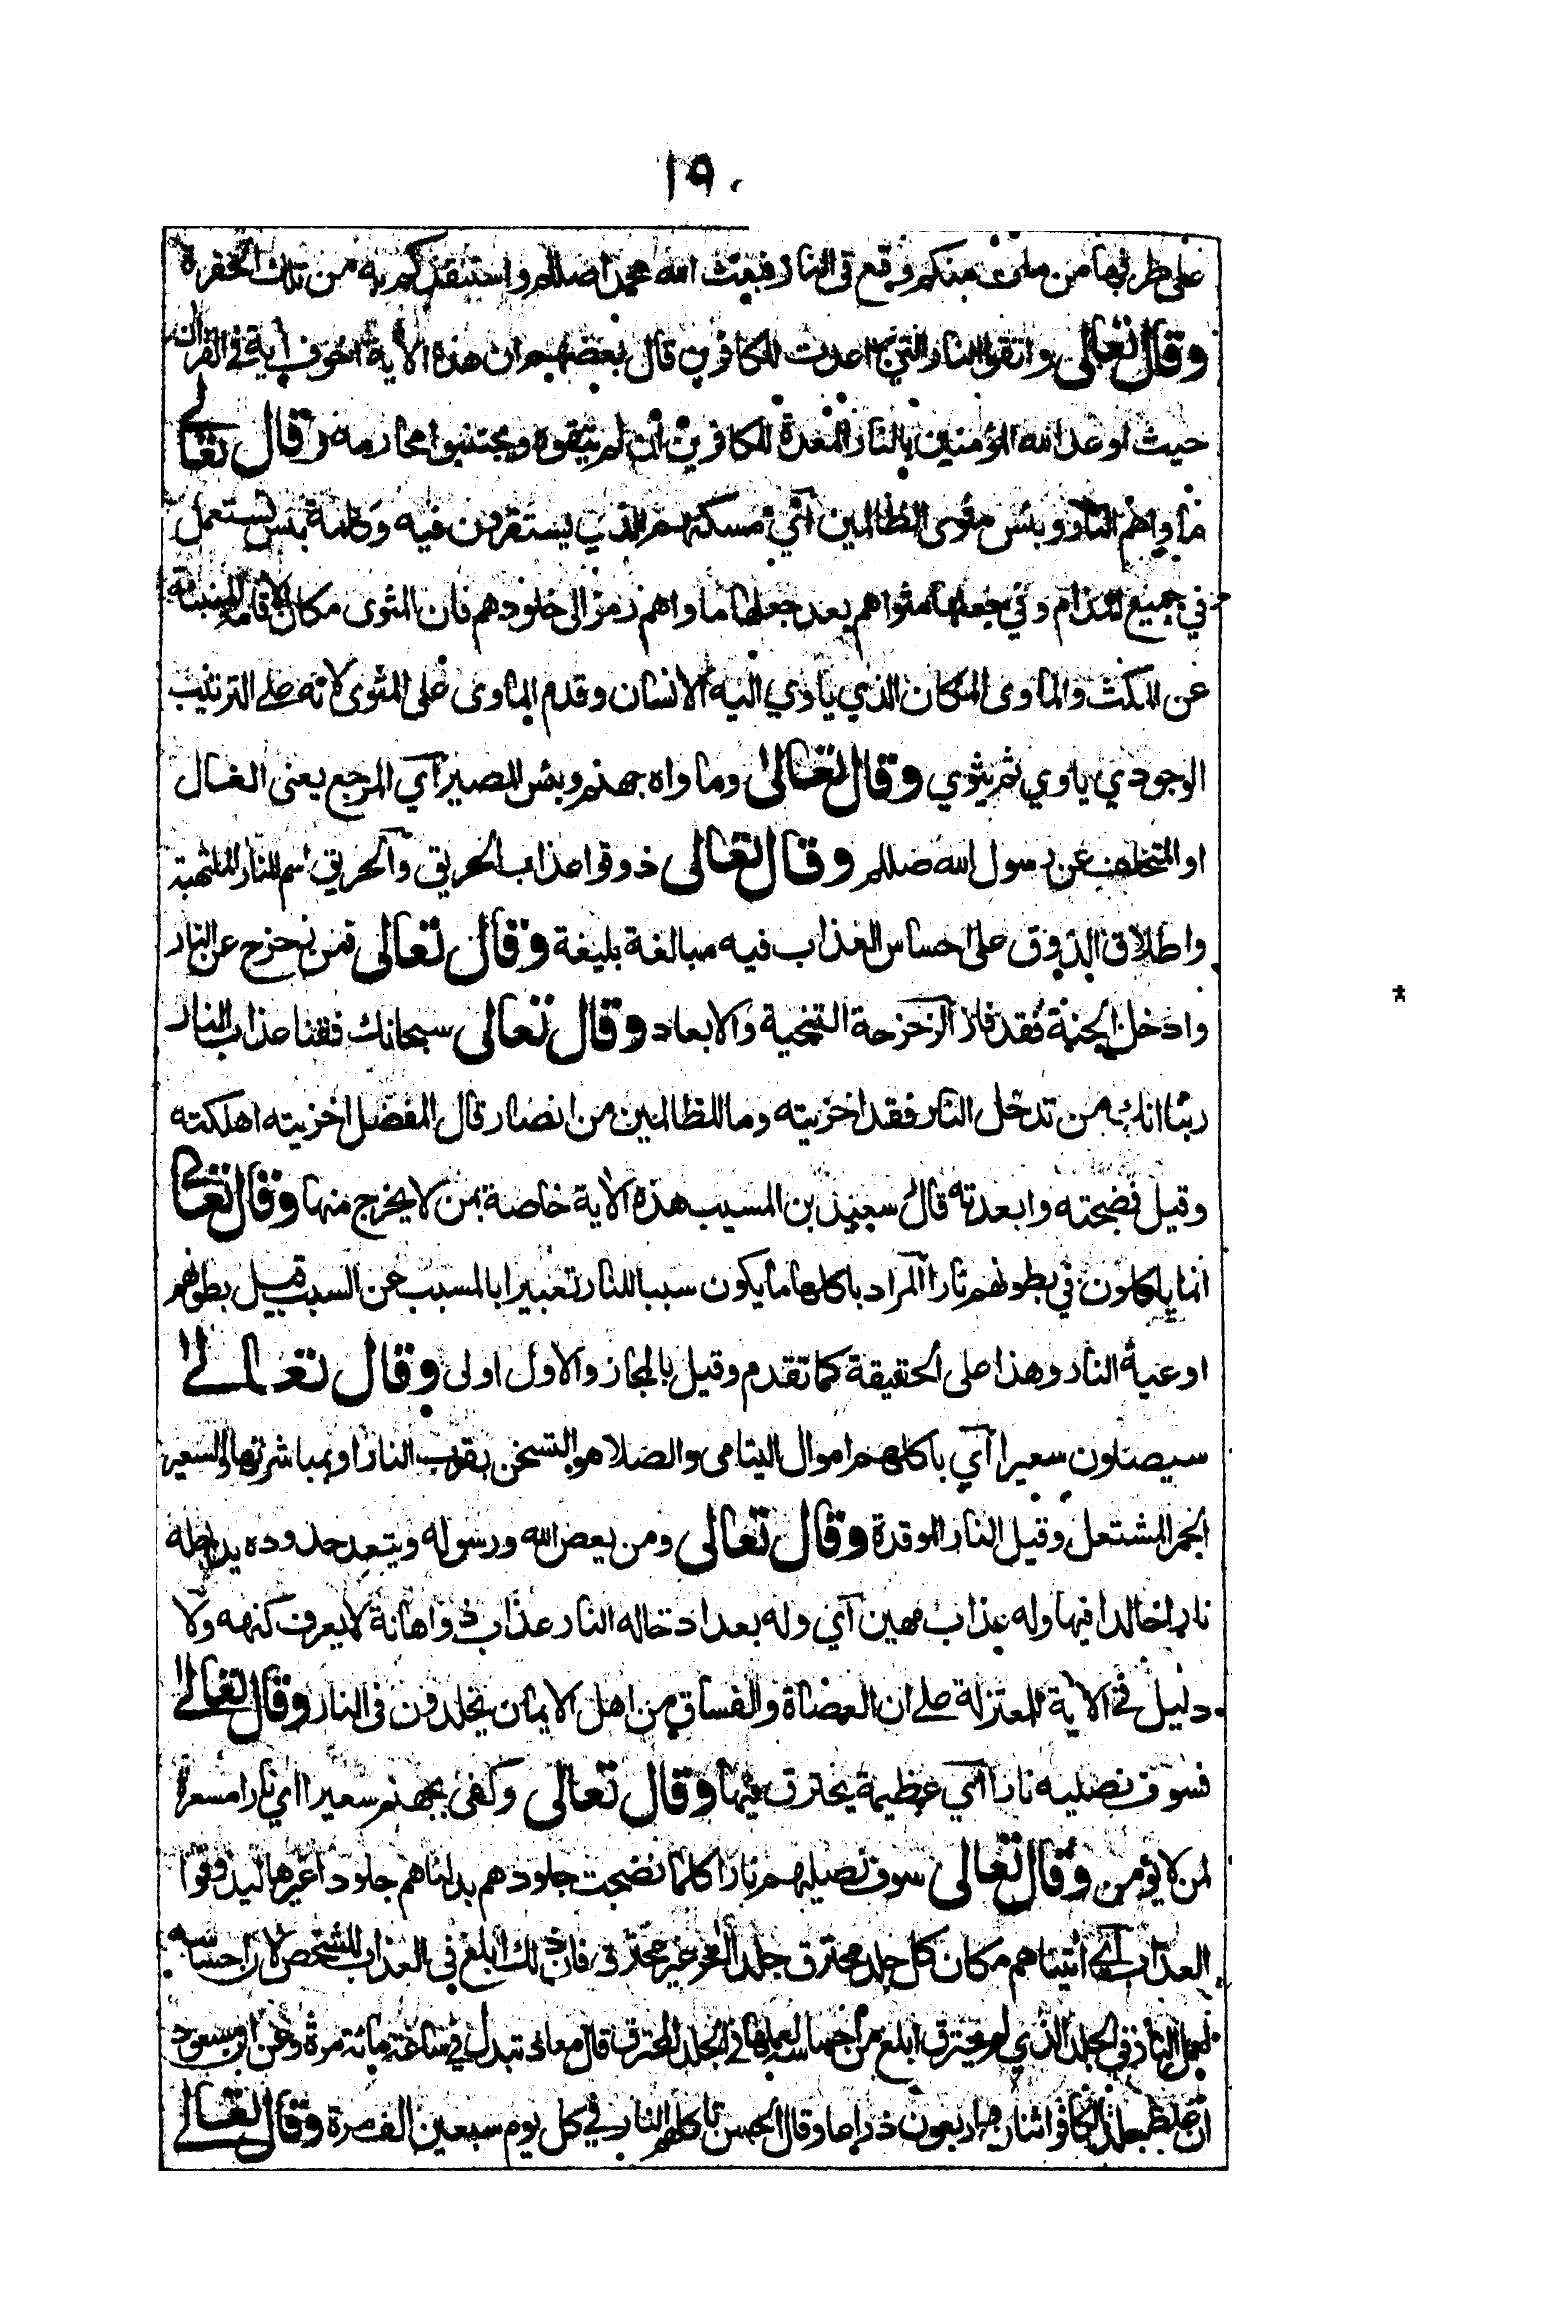 ١٩٠
على طرفها من مات منكم وقع في النار فبعث الله محمدا صللم واستنقذكم به من تلك الحفرة
وقال تعالى واتقوا النار التي اعدت للكافرين قال بعضهم ان هذه الآية اخوف آية في القرآن
حيث اوعد الله المؤمنين بالنار المعدة للكافرين ان لم يتقوه ويجتنبوا محارمه وقال تعالى
مأواهم النار وبئس مثوى الظالمين آي مسكنهم الذي يستقرون فيه وكلمة بئس تستعمل
في جميع المذام وفي جعلها مثواهم بعد جعلها مأواهم رمز الى خلودهم فان المثوى مكان الاقامة المنبئة
عن المكث والمأوى المكان الذي يأوي اليه الانسان وقدم المأوى على المثوى لانه على الترتيب
الوجودي يأوي ثم يثوي وقال تعالى ومأواه جهنم وبئس المصير آي المرجع يعني الغال
او المتخلف عن رسول الله صللم وقال تعالى ذوقوا عذاب الحريق والحريق اسم للنار الملتهبة
واطلاق الذوق على احساس العذاب فيه مبالغة بليغة وقال تعالى فمن زحزح عن النار
وادخل الجنة فقد فاز الزحزحة التنحية والابعاد وقال تعالى سبحانك فقنا عذاب النار
ربنا انك من تدخل النار فقد اخزيته وما للظالمين من انصار قال المفضل اخزيته اهلكته
وقيل فضحته وابعدته قال سعيد بن المسيب هذه الآية خاصة بمن لا يخرج منها وقال تعالى
انما يأكلون في بطونهم نارا المراد بأكلها ما يكون سببا للنار تعبيرا بالمسبب عن السبب قيل بطونهم
اوعية النار وهذا على الحقيقة كما تقدم وقيل بالمجاز والاول اولى وقال تعالى
سيصلون سعيرا آي بأكلهم اموال اليتامى والصلا هو التسخن بقرب النار او بمباشرتها والسعير
الجمر المشتعل وقيل النار الموقدة وقال تعالى ومن يعص الله ورسوله ويتعد حدوده يدخله
نارا خالدا فيها وله عذاب مهين آي وله بعد ادخاله النار عذاب ذو اهانة لا يعرف كنهه ولا
دليل في الآية للمعتزلة على ان العصاة والفساق من اهل الايمان يخلدون في النار وقال تعالى
فسوف نصليه نارا آي عظيمة يحترق فيها وقال تعالى وكفى بجهنم سعيرا اي نارا مسعرة
لمن لا يؤمن وقال تعالى سوف نصليهم نارا كلما نضجت جلودهم بدلناهم جلودا غيرها ليذوقوا
العذاب آي اتيناهم مكان كل جلد محترق جلدا آخر غير محترق فان ذلك ابلغ في العذاب للشخص لان احساسه
لعمل النار في الجلد الذي لم يحترق ابلغ من احساسه لعملها في الجلد المحترق قال معاذ تبدل في ساعة مائة مرة وعن ابن مسعود
ان غلظ جلد الكافر اثنان واربعون ذراعا وقال الحسن تأكلهم النار في كل يوم سبعين الف مرة وقال تعالى